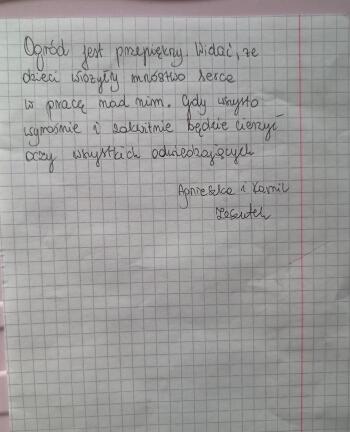 Ogród jest przepiękny. Widać, że
dzieci włożyły mnóstwo serca
w pracę nad nim. Gdy wszysto
wyrośnie i zakwitnie będzie cieszyć
oczy wszystkich odwiedzających
Agnieszka i Kamil